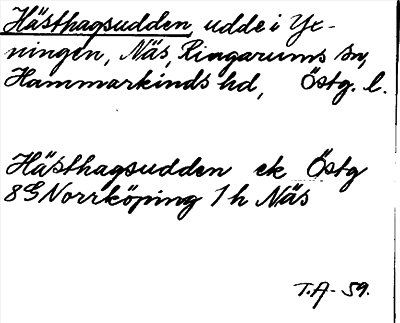 Hästhagsudden, udde i Yx-
ningen, Näs, Ringarums sn,
Hammarkinds hd, Östg. l.
Hästhagsudden ek Östg
8G Norrköping 1h Näs
T.A-59.